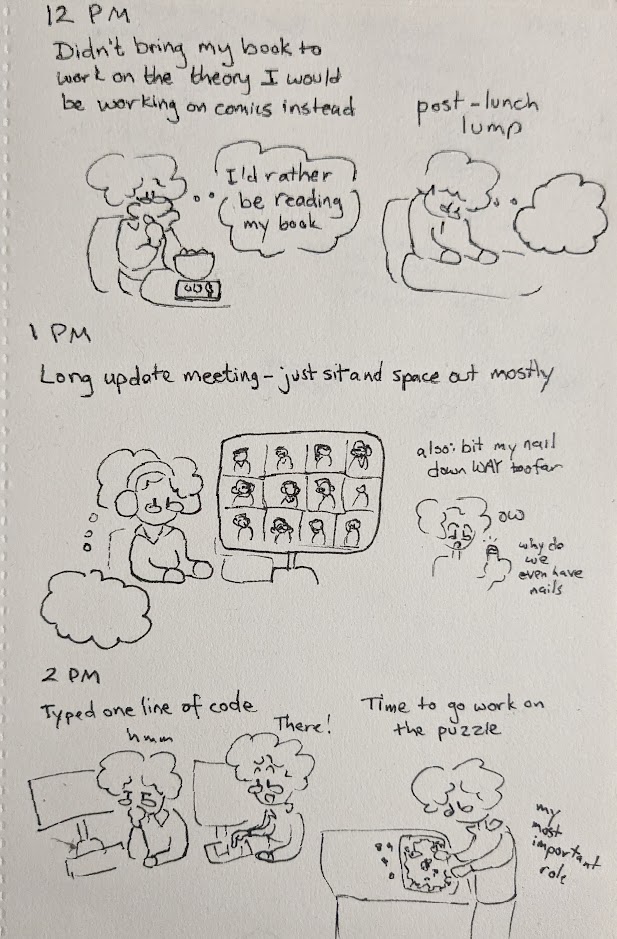 12 PM
Didn't bring my book to
work on the theory I would
be working on comics instead
I'd rather
be reading
my book
post-lunch
lump
1 PM
Long update meeting - just sit and space out mostly
also: bit my nail
down WAY too far
ow
why do
we
even have
nails
2 PM
Typed one line of code
hmm
There!
Time to go work on
the puzzle
my
most
important
role